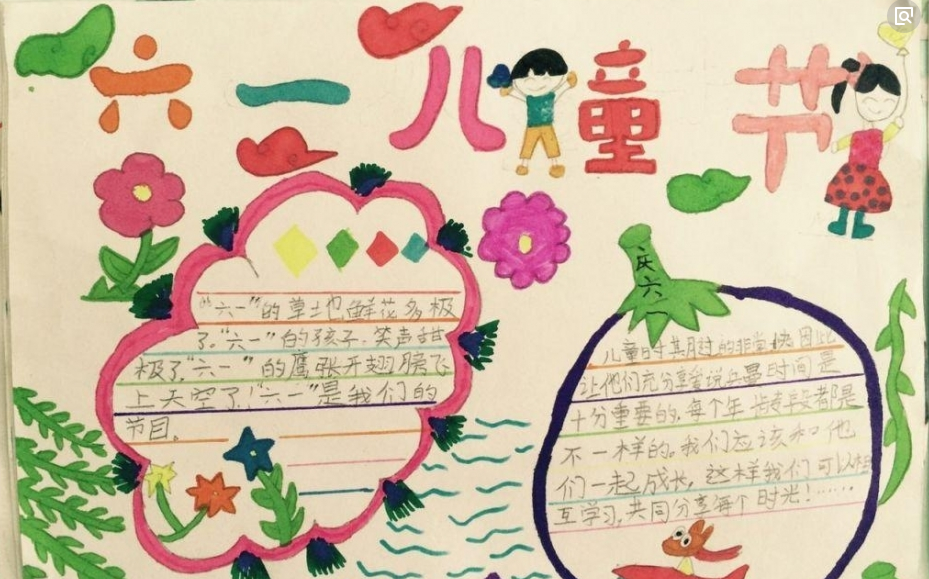 六一儿童节
"六一"的草地鲜花多极
了。"六一"的孩子,笑声甜
极了,"六一"的鹰张开翅膀飞
上天空了!"六一"是我们的
节目。
庆六一
儿童时其月过的非常快,因此
让他们充分享受说是时间是
十分重要的,每个年龄段都是
不一样的。我们应该和他
们一起成长,这样我们可以相
互学习,共同分享每个时光!······